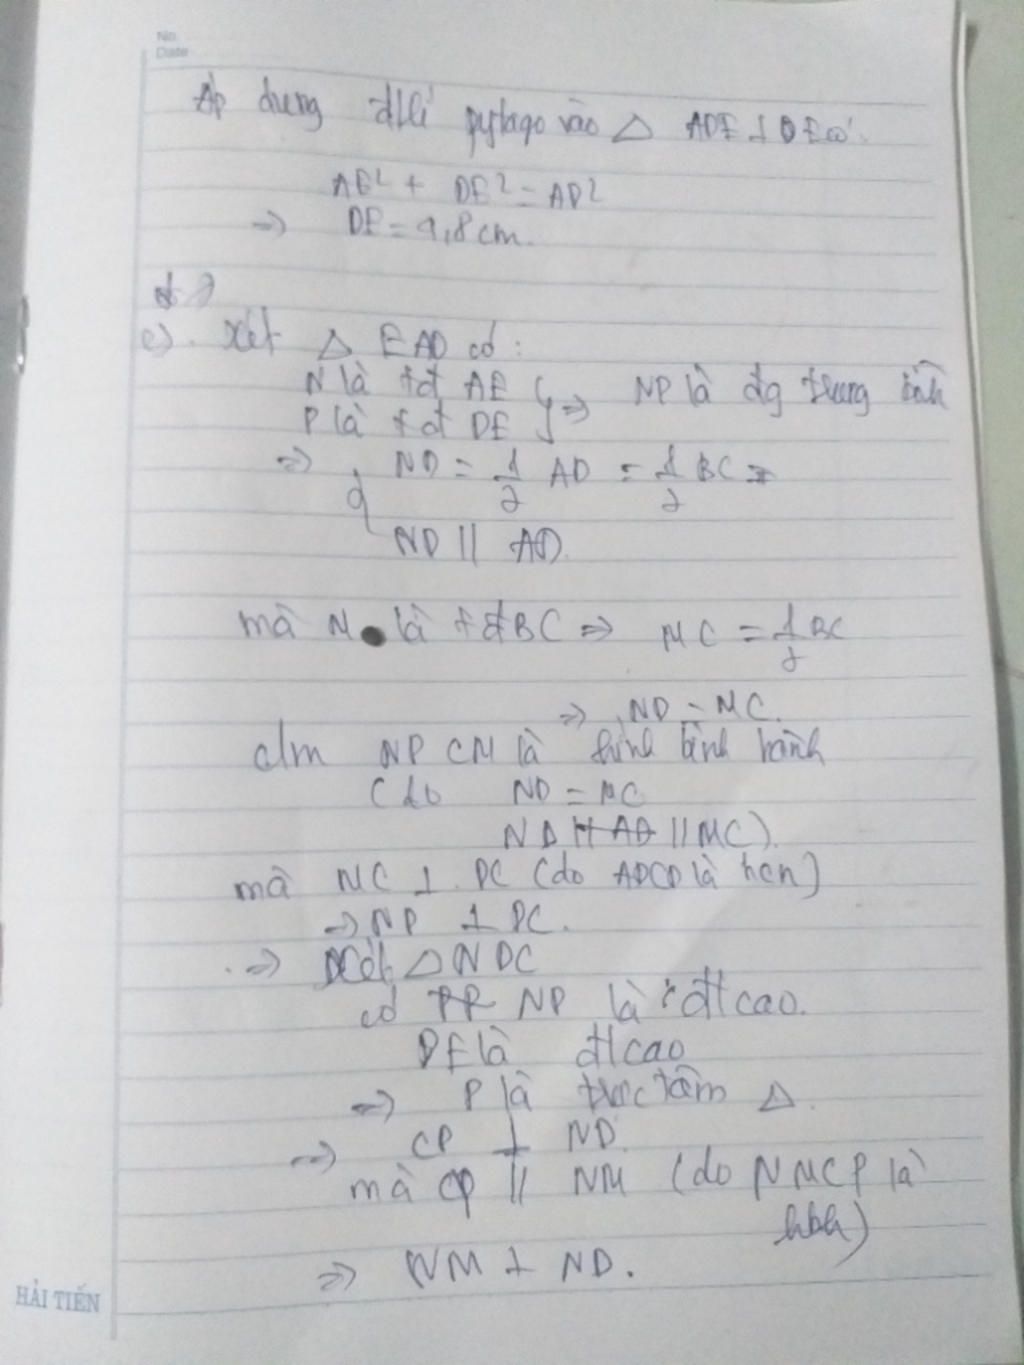 No.
Date
Áp dụng đlí pytago vào △ ADE ⊥ ở E có:
AE² + DE² = AD²
=> DE = 4,8cm.
c). Xét △ EAD có:
N là tđ AE } => NP là đg trung bình
P là tđ DE
=> { ND = 1/2 AD = 1/2 BC
ND // AD.
mà M là tđ BC => MC = 1/2 BC
=> ND = MC.
c/m NPCM là hình bình hành
(do ND = MC
ND // AD // MC).
mà MC ⊥ DC (do ABCD là hcn)
=> NP ⊥ DC.
=> Xét △ NDC
có NP là đcao.
DE là đcao
=> P là trực tâm △.
=> CP ⊥ ND.
mà CP // NM (do NMCP là
hbh)
=> NM ⊥ ND.
HẢI TIẾN